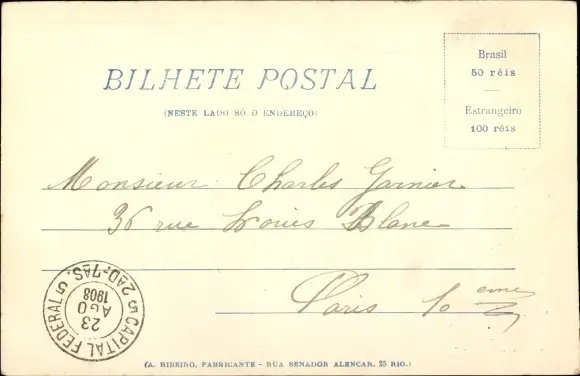 BILHETE POSTAL
(NESTE LADO SÓ O ENDEREÇO)
Brasil
50 réis
Estrangeiro
100 réis
Monsieur Charles Garnier
36 rue Louis Blanc
Paris 10 eme
CAPITAL FEDERAL 5
5 2AD-7AS.
23
AGO
1908
(A. RIBEIRO, FABRICANTE - RUA SENADOR ALENCAR, 25 RIO.)